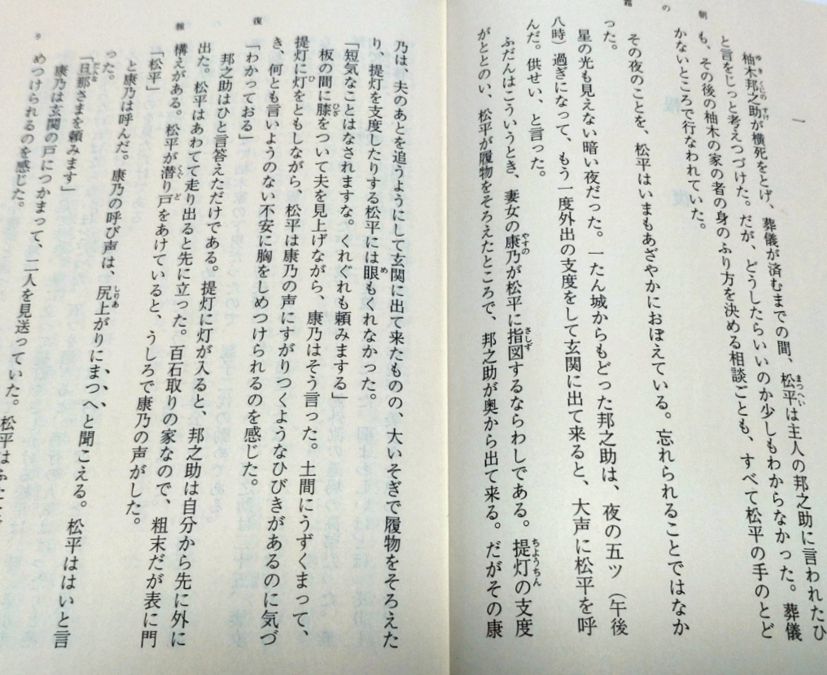 一
柚木邦之助が横死をとげ、葬儀が済むまでの間、松平は主人の邦之助に言われたひ
と言をじっと考えつづけた。だが、どうしたらいいのか少しもわからなかった。葬儀
も、その後の柚木の家の者の身のふり方を決める相談ごとも、すべて松平の手のとど
かないところで行なわれていた。
その夜のことを、松平はいまもあざやかにおぼえている。忘れられることではなか
った。
星の光も見えない暗い夜だった。一たん城からもどった邦之助は、夜の五ツ（午後
八時）過ぎになって、もう一度外出の支度をして玄関に出て来ると、大声に松平を呼
んだ。供せい、と言った。
ふだんはこういうとき、妻女の康乃が松平に指図するならわしである。提灯の支度
がととのい、松平が履物をそろえたところで、邦之助が奥から出て来る。だがその康
乃は、夫のあとを追うようにして玄関に出て来たものの、大いそぎで履物をそろえた
り、提灯を支度したりする松平には眼もくれなかった。
「短気なことはなされますな。くれぐれも頼みまする」
板の間に膝をついて夫を見上げながら、康乃はそう言った。土間にうずくまって、
提灯に灯をともしながら、松平は康乃の声にすがりつくようなひびきがあるのに気づ
き、何とも言いようのない不安に胸をしめつけられるのを感じた。
「わかっておる」
邦之助はひと言答えただけである。提灯に灯が入ると、邦之助は自分から先に外に
出た。松平はあわてて走り出ると先に立った。百石取りの家なので、粗末だが表に門
構えがある。松平が潜り戸をあけていると、うしろで康乃の声がした。
「松平」
と康乃は呼んだ。康乃の呼び声は、尻上がりにまつへと聞こえる。松平ははいと言
った。
「旦那さまを頼みます」
康乃は玄関の戸につかまって、二人を見送っていた。松平はふた
めつけられるのを感じた。